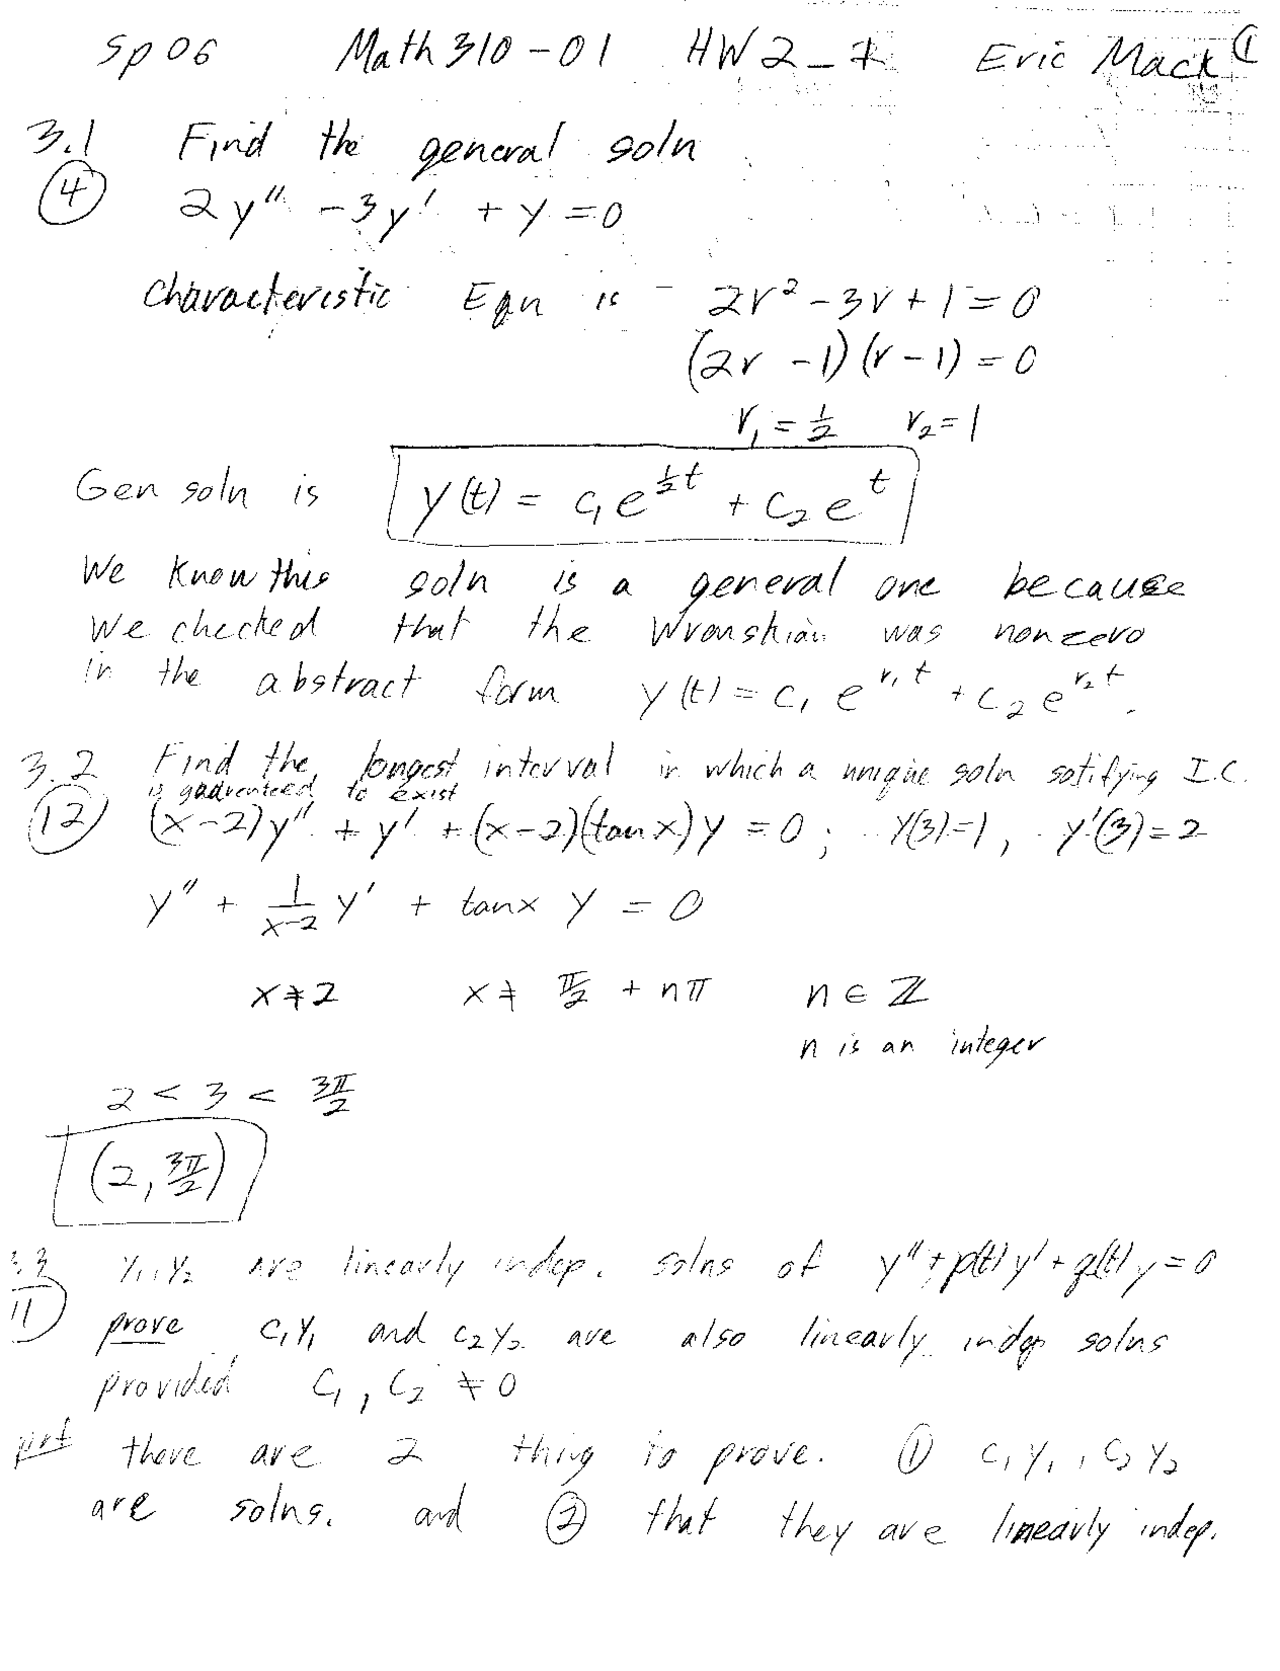 Sp 06 Math 310-01 HW 2 - 7 Eric Mack ①
3.1 Find the general soln
④ 2y'' - 3y' + y = 0
characteristic Eqn is 2r² - 3r + 1 = 0
(2r - 1)(r - 1) = 0
r₁ = ½ r₂ = 1
Gen soln is y(t) = c₁e^{½t} + c₂e^{t}
We know this soln is a general one because
We checked that the Wronskian was nonzero
in the abstract form y(t) = c₁e^{r₁t} + c₂e^{r₂t}.
3.2 Find the longest interval in which a unique soln satifying I.C.
is guarenteed to exist
⑫ (x-2)y'' + y' + (x-2)(tan x)y = 0; y(3)=1, y'(3)=2
y'' + 1/(x-2) y' + tanx y = 0
x ≠ 2 x ≠ π/2 + nπ n ∈ ℤ
n is an integer
2 < 3 < 3π/2
(2, 3π/2)
3.3 y₁, y₂ are linearly indep. solns of y'' + p(t)y' + q(t)y = 0
⑪ prove c₁y₁ and c₂y₂ are also linearly indep solns
provided c₁, c₂ ≠ 0
prf there are 2 thing to prove. ① c₁y₁, c₂y₂
are solns. and ② that they are linearly indep.